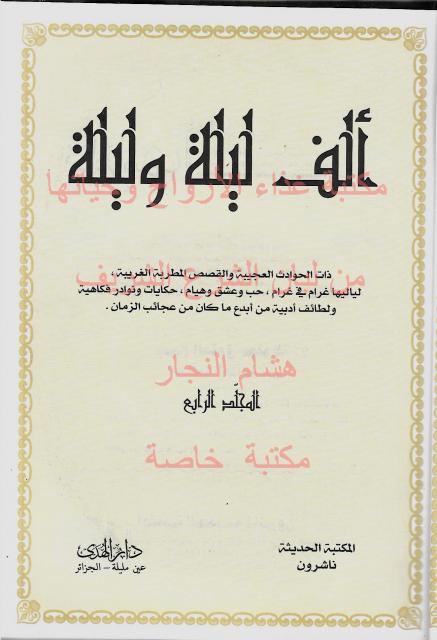 ألف ليلة وليلة
مكتبة غذاء الأرواح وحياتها
ذات الحوادث العجيبة والقصص المطربة الغريبة ،
من لبان الشرع الشريف
لياليها غرام في غرام ، حب وعشق وهيام ، حكايات ونوادر فكاهية
ولطائف أدبية من أبدع ما كان من عجائب الزمان .
هشام النجار
المجلّد الرابع
مكتبة خاصة
المكتبة الحديثة
ناشرون
دار الهدى
عين مليلة - الجزائر